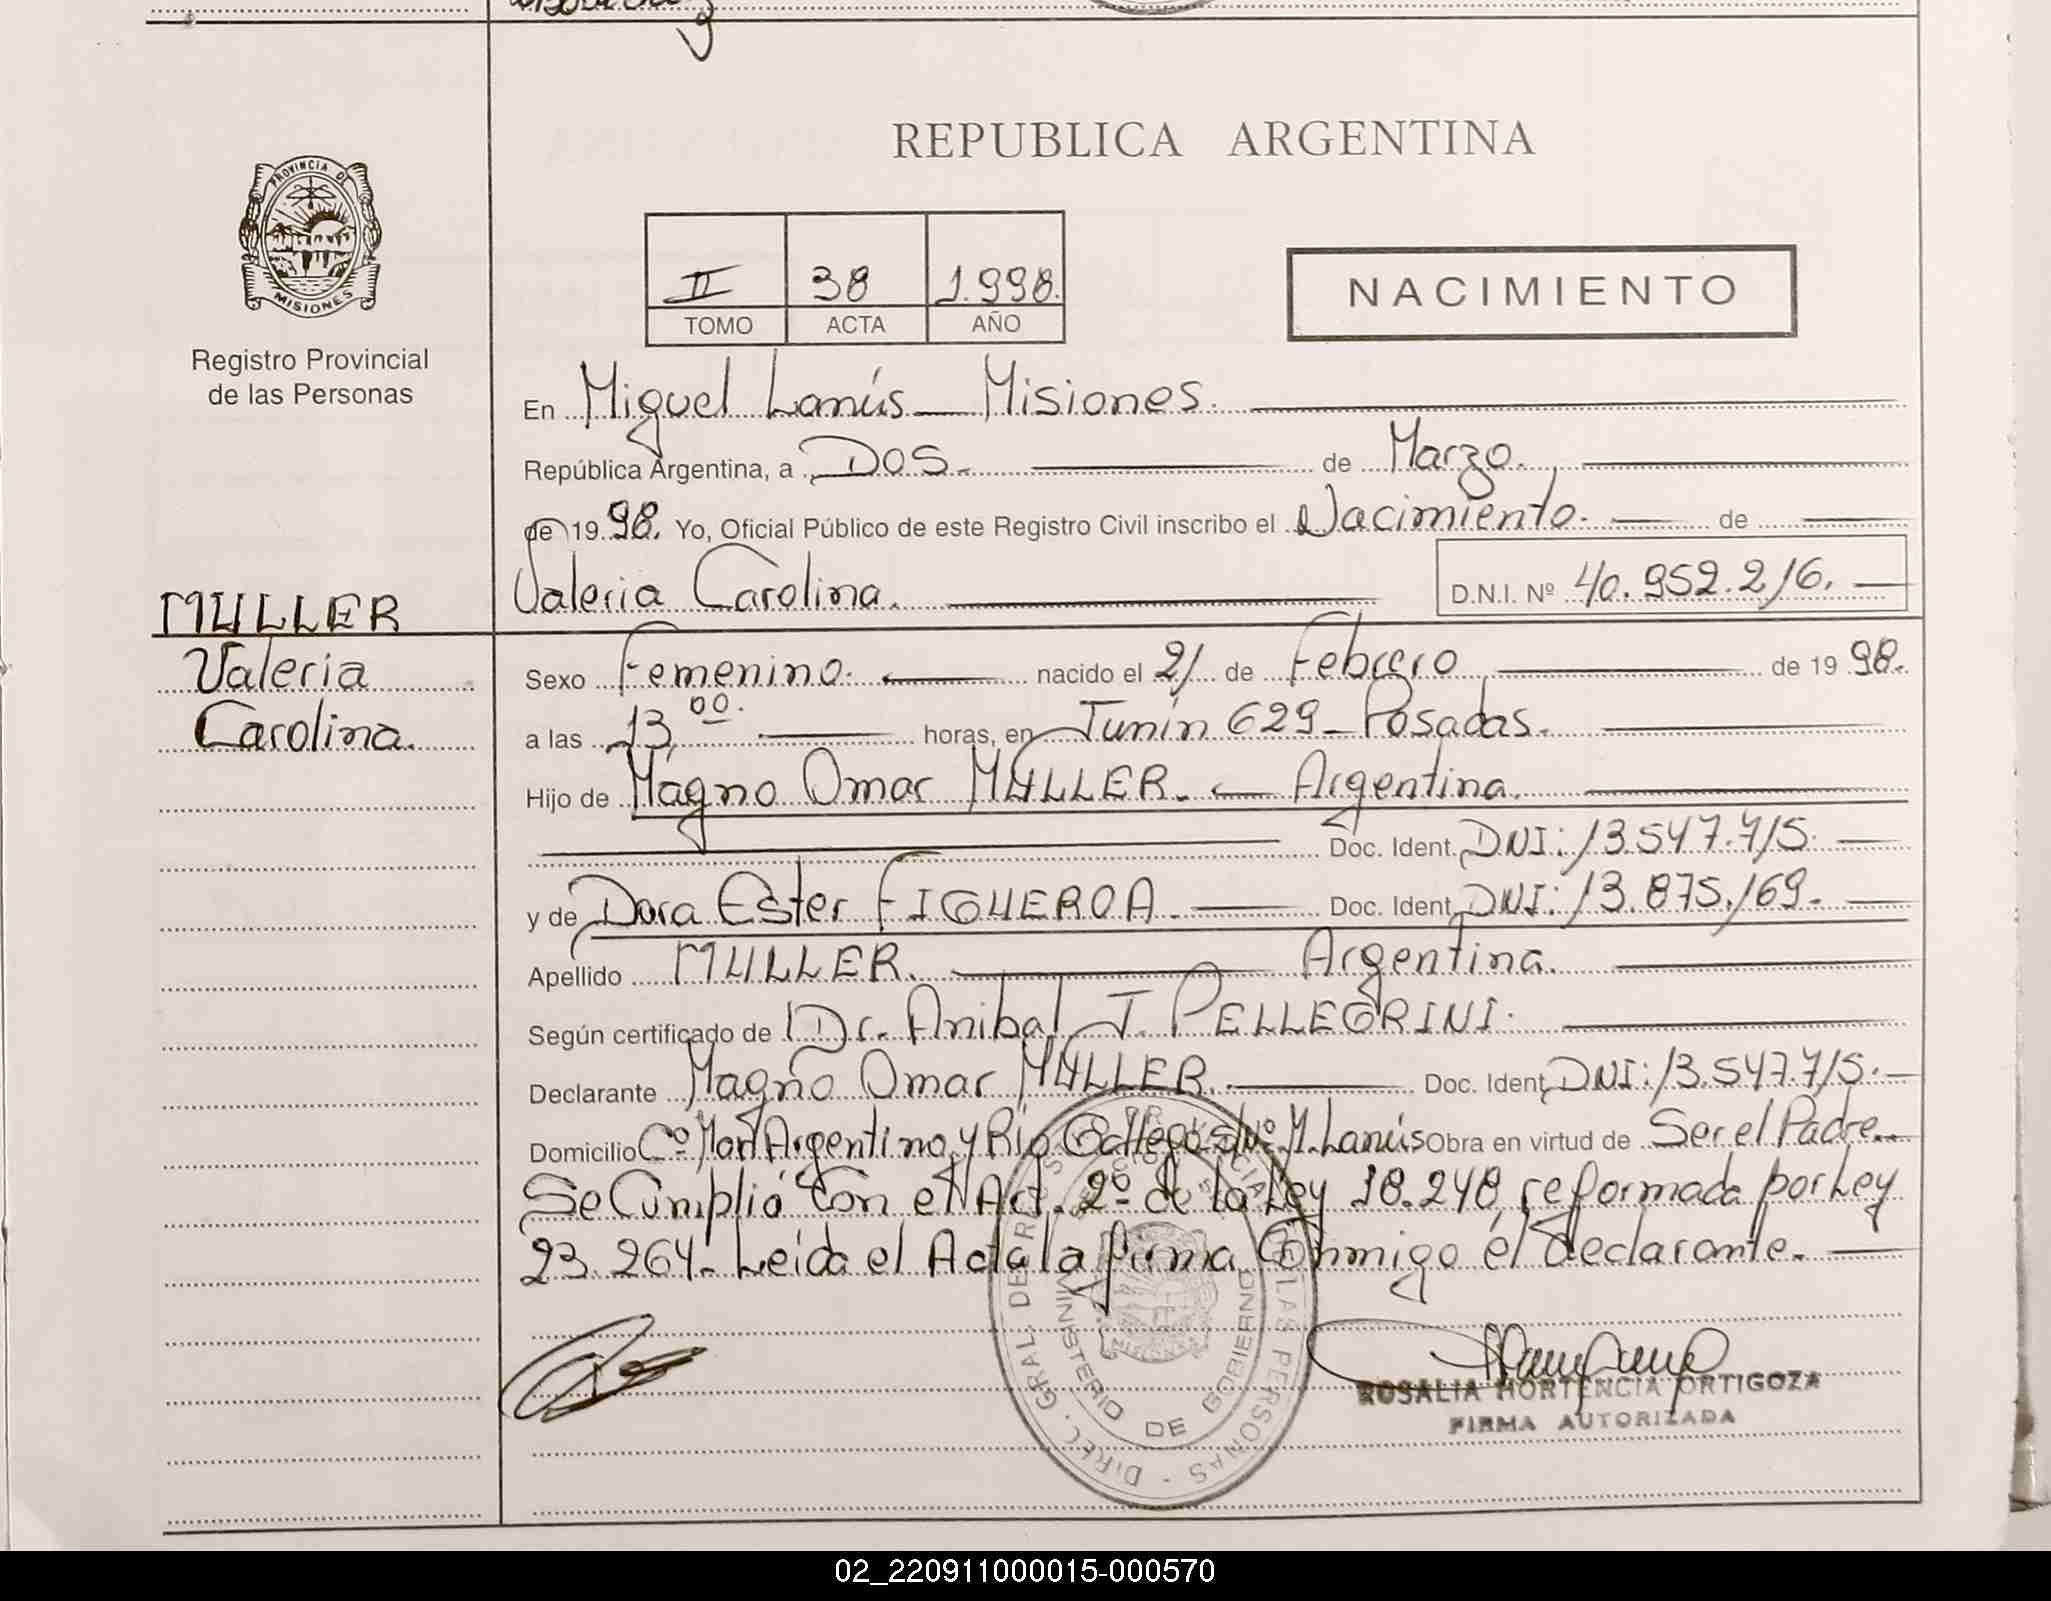 REPUBLICA ARGENTINA
PROVINCIA DE
MISIONES
Registro Provincial
de las Personas
II 38 1.998.
TOMO ACTA AÑO
NACIMIENTO
En Miguel Lanús - Misiones.
República Argentina, a Dos. de Marzo.
de 19 98. Yo, Oficial Público de este Registro Civil inscribo el Nacimiento. de
Valeria Carolina. D.N.I. Nº 40.952.216.
MULLER
Valeria
Carolina.
Sexo Femenino. nacido el 21 de Febrero de 19 98.
a las 13,00. horas, en Junín 629 - Posadas.
Hijo de Magno Omar MULLER. - Argentina.
Doc. Ident. DNI: 13.547.715.
y de Dora Ester FIGUEROA. Doc. Ident. DNI: 13.875.169.
Apellido MULLER. Argentina.
Según certificado de Dr. Anibal J. PELLEGRINI.
Declarante Magno Omar MULLER. Doc. Ident. DNI: 13.547.715.
Domicilio Cº Mar Argentino y Río Gallegos s/nº M. Lanús Obra en virtud de Ser el Padre.
Se Cumplió con el Art. 2º de la Ley 18.248, reformada por Ley
23.264. Leída el Acta la firma Conmigo el declarante.
MINISTERIO DE GOBIERNO
ROSALIA HORTENCIA ORTIGOZA
FIRMA AUTORIZADA
02_220911000015-000570